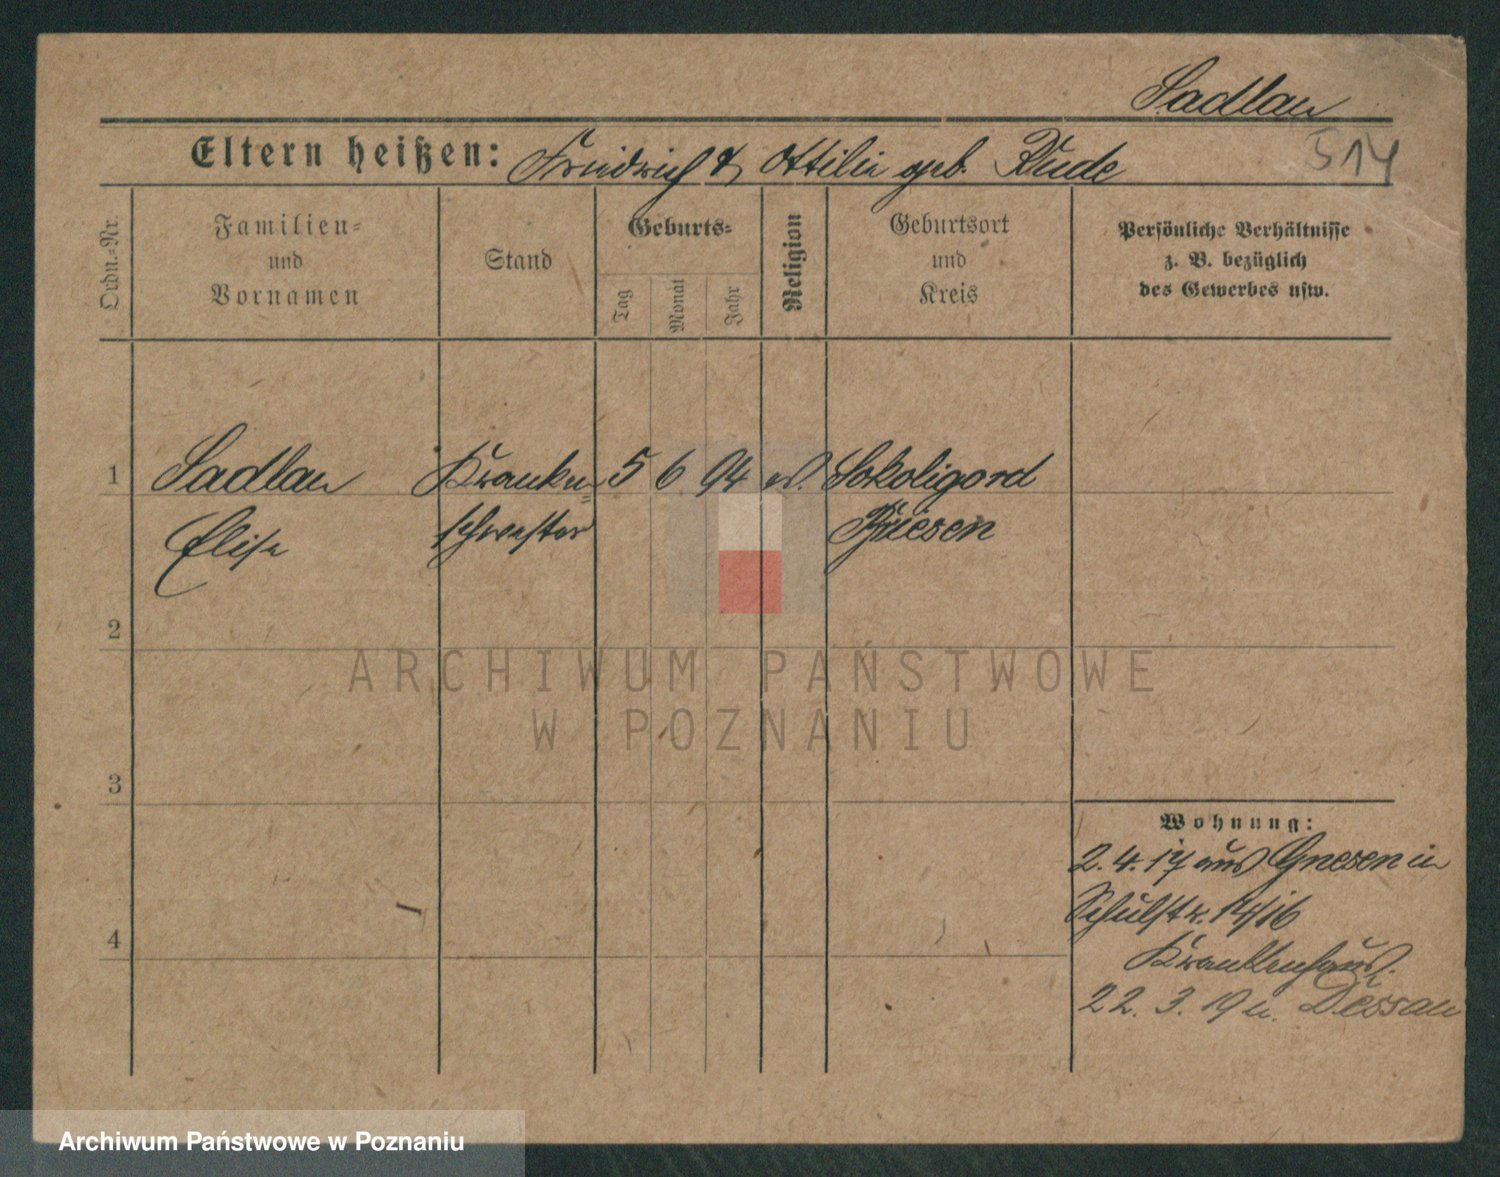 Sadlau
Eltern heißen: Friedrich & Ottilie geb. Rude
514
Ordn.-Nr.
Familien-
und
Vornamen
Stand
Geburts-
Tag
Monat
Jahr
Religion
Geburtsort
und
Kreis
Persönliche Verhältnisse
z. B. bezüglich
des Gewerbes usw.
1 Sadlau Kranken= 5 6 94 ev. Sokoligord
Elise schwester Briesen
2
3
4
Wohnung:
2.4.17 aus Gnesen in
Schulstr. 14/16
Krankenhaus.
22.3.19 n. Dessau
ARCHIWUM PAŃSTWOWE
W POZNANIU
Archiwum Państwowe w Poznaniu